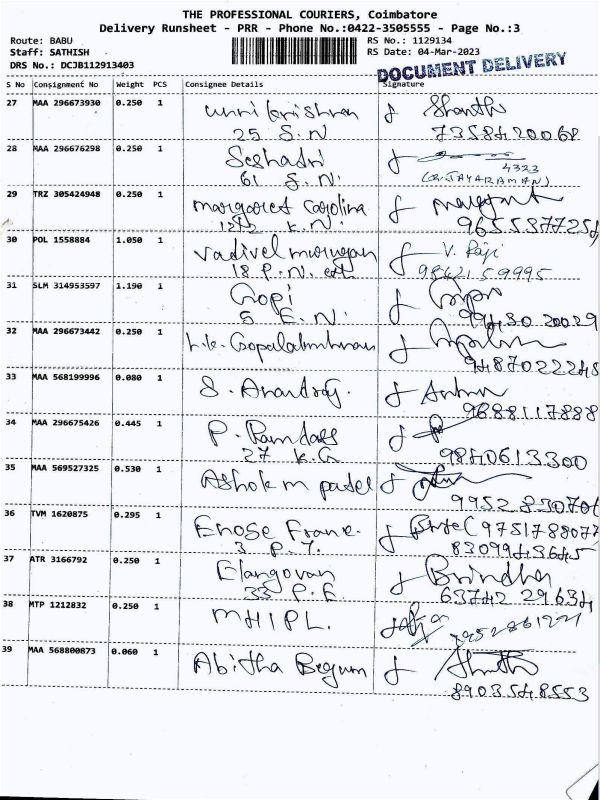 THE PROFESSIONAL COURIERS, Coimbatore
Delivery Runsheet - PRR - Phone No.:0422-3505555 - Page No.:3
Route: BABU
Staff: SATHISH
DRS No.: DCJB112913403
RS No.: 1129134
RS Date: 04-Mar-2023
DOCUMENT DELIVERY
S No Consignment No Weight PCS Consignee Details Signature
27 MAA 296673930 0.250 1 Unni krishnan Shanthi
25 S.N 7358420068
28 MAA 296676298 0.250 1 Seshadri
61 S.N. 4323
29 TRZ 305424948 0.250 1 margaret Carolina
K.N.
30 POL 1558884 1.050 1 Vadivel murugan V. Raji
18 P.N. 9842159995
31 SLM 314953597 1.190 1 Gopi
5 E.N. 9943020029
32 MAA 296673442 0.250 1
9487022248
33 MAA 568199996 0.080 1 S. Anandraj
9688117888
34 MAA 296675426 0.445 1 P. Ramdass
27 K.G 9840613300
35 MAA 569527325 0.530 1 Ashok m patel
36 TVM 1620875 0.295 1 Enose Franc. (9751788077
3 P.T. 8309943645
37 ATR 3166792 0.250 1 Elangovan Brindha
33 P.E 63742 29634
38 MTP 1212832 0.250 1 MHIPL.
39 MAA 568800873 0.060 1 Abitha Begum
8903548553